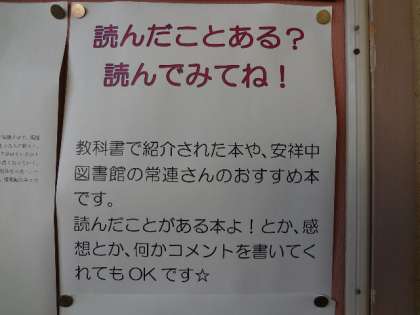 読んだことある？
読んでみてね！
教科書で紹介された本や、安祥中
図書館の常連さんのおすすめ本
です。
読んだことがある本よ！とか、感
想とか、何かコメントを書いてく
れてもOKです☆